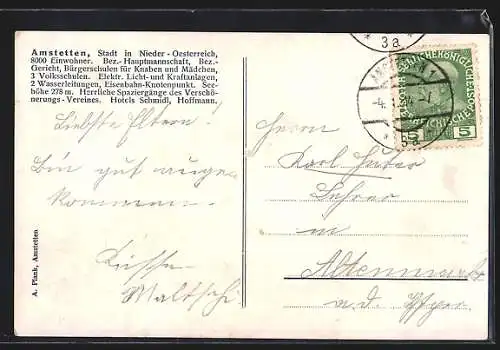 Amstetten, Stadt in Nieder-Oesterreich,
8000 Einwohner. Bez.-Hauptmannschaft, Bez.-
Gericht, Bürgerschulen für Knaben und Mädchen,
3 Volksschulen. Elektr. Licht- und Kraftanlagen,
2 Wasserleitungen, Eisenbahn-Knotenpunkt. See-
höhe 278 m. Herrliche Spaziergänge des Verschö-
nerungs-Vereines. Hotels Schmidl, Hoffmann.
Liebste Eltern!
Bin gut ange
kommen.
Küsse
A. Plank, Amstetten
3a
5 5
Herrn
Karl
Lehrer
in
Altenmarkt
a.d.